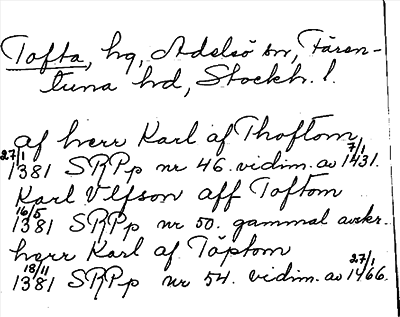 Tofta, hg, Adelsö sn, Fären-
tuna hd, Stockh. l.
af herr Karl af Thoftom
27/1 1381 SRPp nr 46. vidim. av 7/1 1431.
Karl Ulfson aff Toftom
16/5 1381 SRPp nr 50. gammal avskr.
herr Karl af Töptom
18/11 1381 SRPp nr 54. vidim. av 27/1 1466.